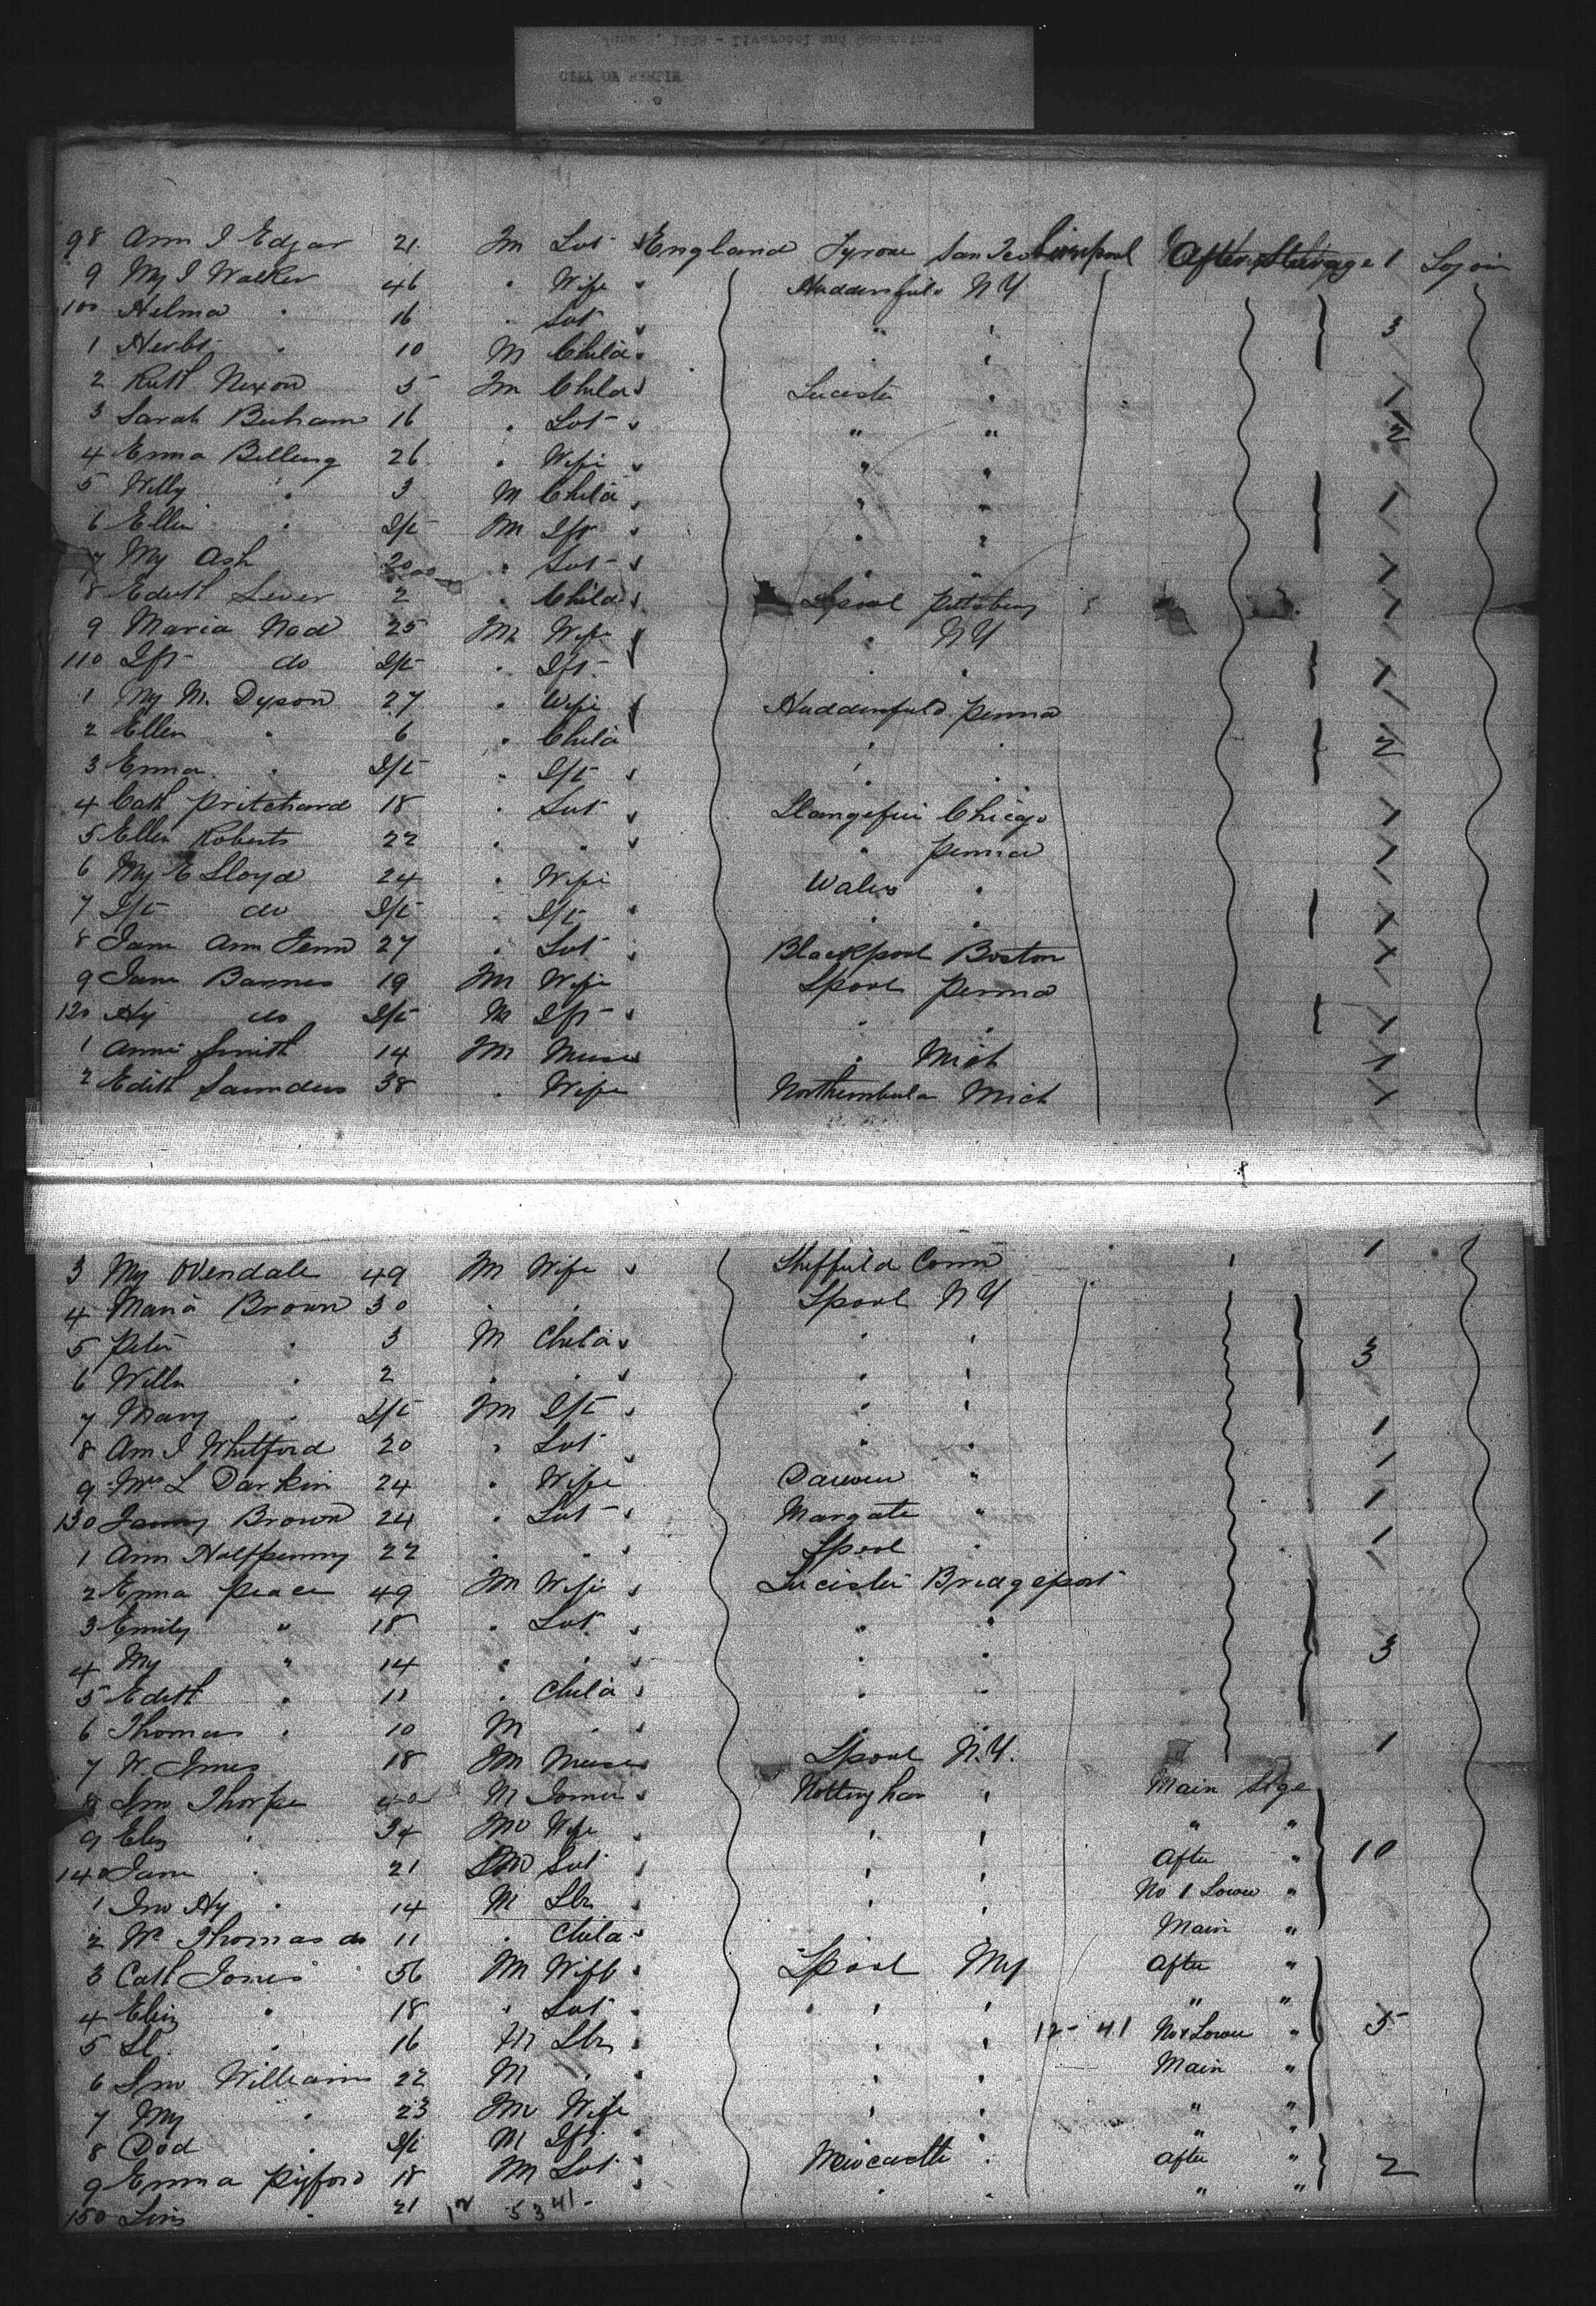 98 Ann J Edgar 21 Fm Lut England Tyrone San Liverpool After Steerage 1
9 My J Walker 46 " Wife Huddersfield NY
100 Helma " 16 " Lut " "
1 Herbt " 10 M Child " " 3
2 Ruth Nixon 5 Fm Child Leicester " 1
3 Sarah Birham 16 " Lut " " 2
4 Emma Billing 26 " Wife " "
5 Willy " 3 M Child " " 1
6 Ellen " Ift Fm Ift " "
7 My Ash 20 " Lut " " 1
8 Edith Lever 2 " Child Lpool Pittsburg 1
9 Maria Nod 25 Fm Wife " NY
110 Ift do Ift " Ift " " 1
1 My M. Dyson 27 " Wife Huddersfield Penna
2 Ellen " 6 " Child " " 2
3 Emma " Ift " Ift " "
4 Cath Pritchard 18 " Lut Llangefni Chicago 1
5 Ellen Roberts 22 " " " Penna 1
6 My E Lloyd 24 " Wife Wales "
7 Ift do Ift " Ift " " 1
8 Jane Ann Fenn 27 " Lut Blackpool Boston 1
9 Jane Barnes 19 Fm Wife Lpool Penna
120 Hy do Ift M Ift " " 1
1 Annie Smith 14 Fm " Mich 1
2 Edith Saunders 38 " Wife Northumbula Mich 1
3 My Ovendale 49 Fm Wife Sheffield Conn 1
4 Maria Brown 30 " " Lpool NY
5 Peter " 3 M Child " " 3
6 Willm " 2 " " " "
7 Mary " Ift Fm Ift " "
8 Ann J Whitford 20 " Lut " " 1
9 Mrs L Darkin 24 " Wife Darwen " 1
130 Fanny Brown 24 " Lut Margate " 1
1 Ann Halfpenny 22 " " Lpool " 1
2 Emma Peace 49 Fm Wife Leicester Bridgeport
3 Emily " 18 " Lut " "
4 My " 14 " " " " 3
5 Edith " 11 " Child " "
6 Thomas " 10 M " " "
7 W. Jones 18 Fm Lpool N.Y. 1
8 Jno Thorpe 40 M Joiner Nottingham " Main Stge
9 Eliz " 34 Fm Wife " " " "
140 Jane " 21 Fm Lut " " After " 10
1 Jno Hy " 14 M Lbr " " No 1 Lower "
2 Wm Thomas do 11 " Child " " Main "
3 Cath Jones 56 Fm Wife Lpool NY After "
4 Eliz " 18 " Lut " " " "
5 Ll. " 16 M Lbr " " 12- 41 No 1 Lower " 5
6 Jno Williams 22 M " " " Main "
7 My " 23 Fm Wife " " " "
8 Dod " Ift M Ift " " " "
9 Emma Pyford 18 Fm Lut Newcastle " After " 2
150 " 21 12 5341- " " " "